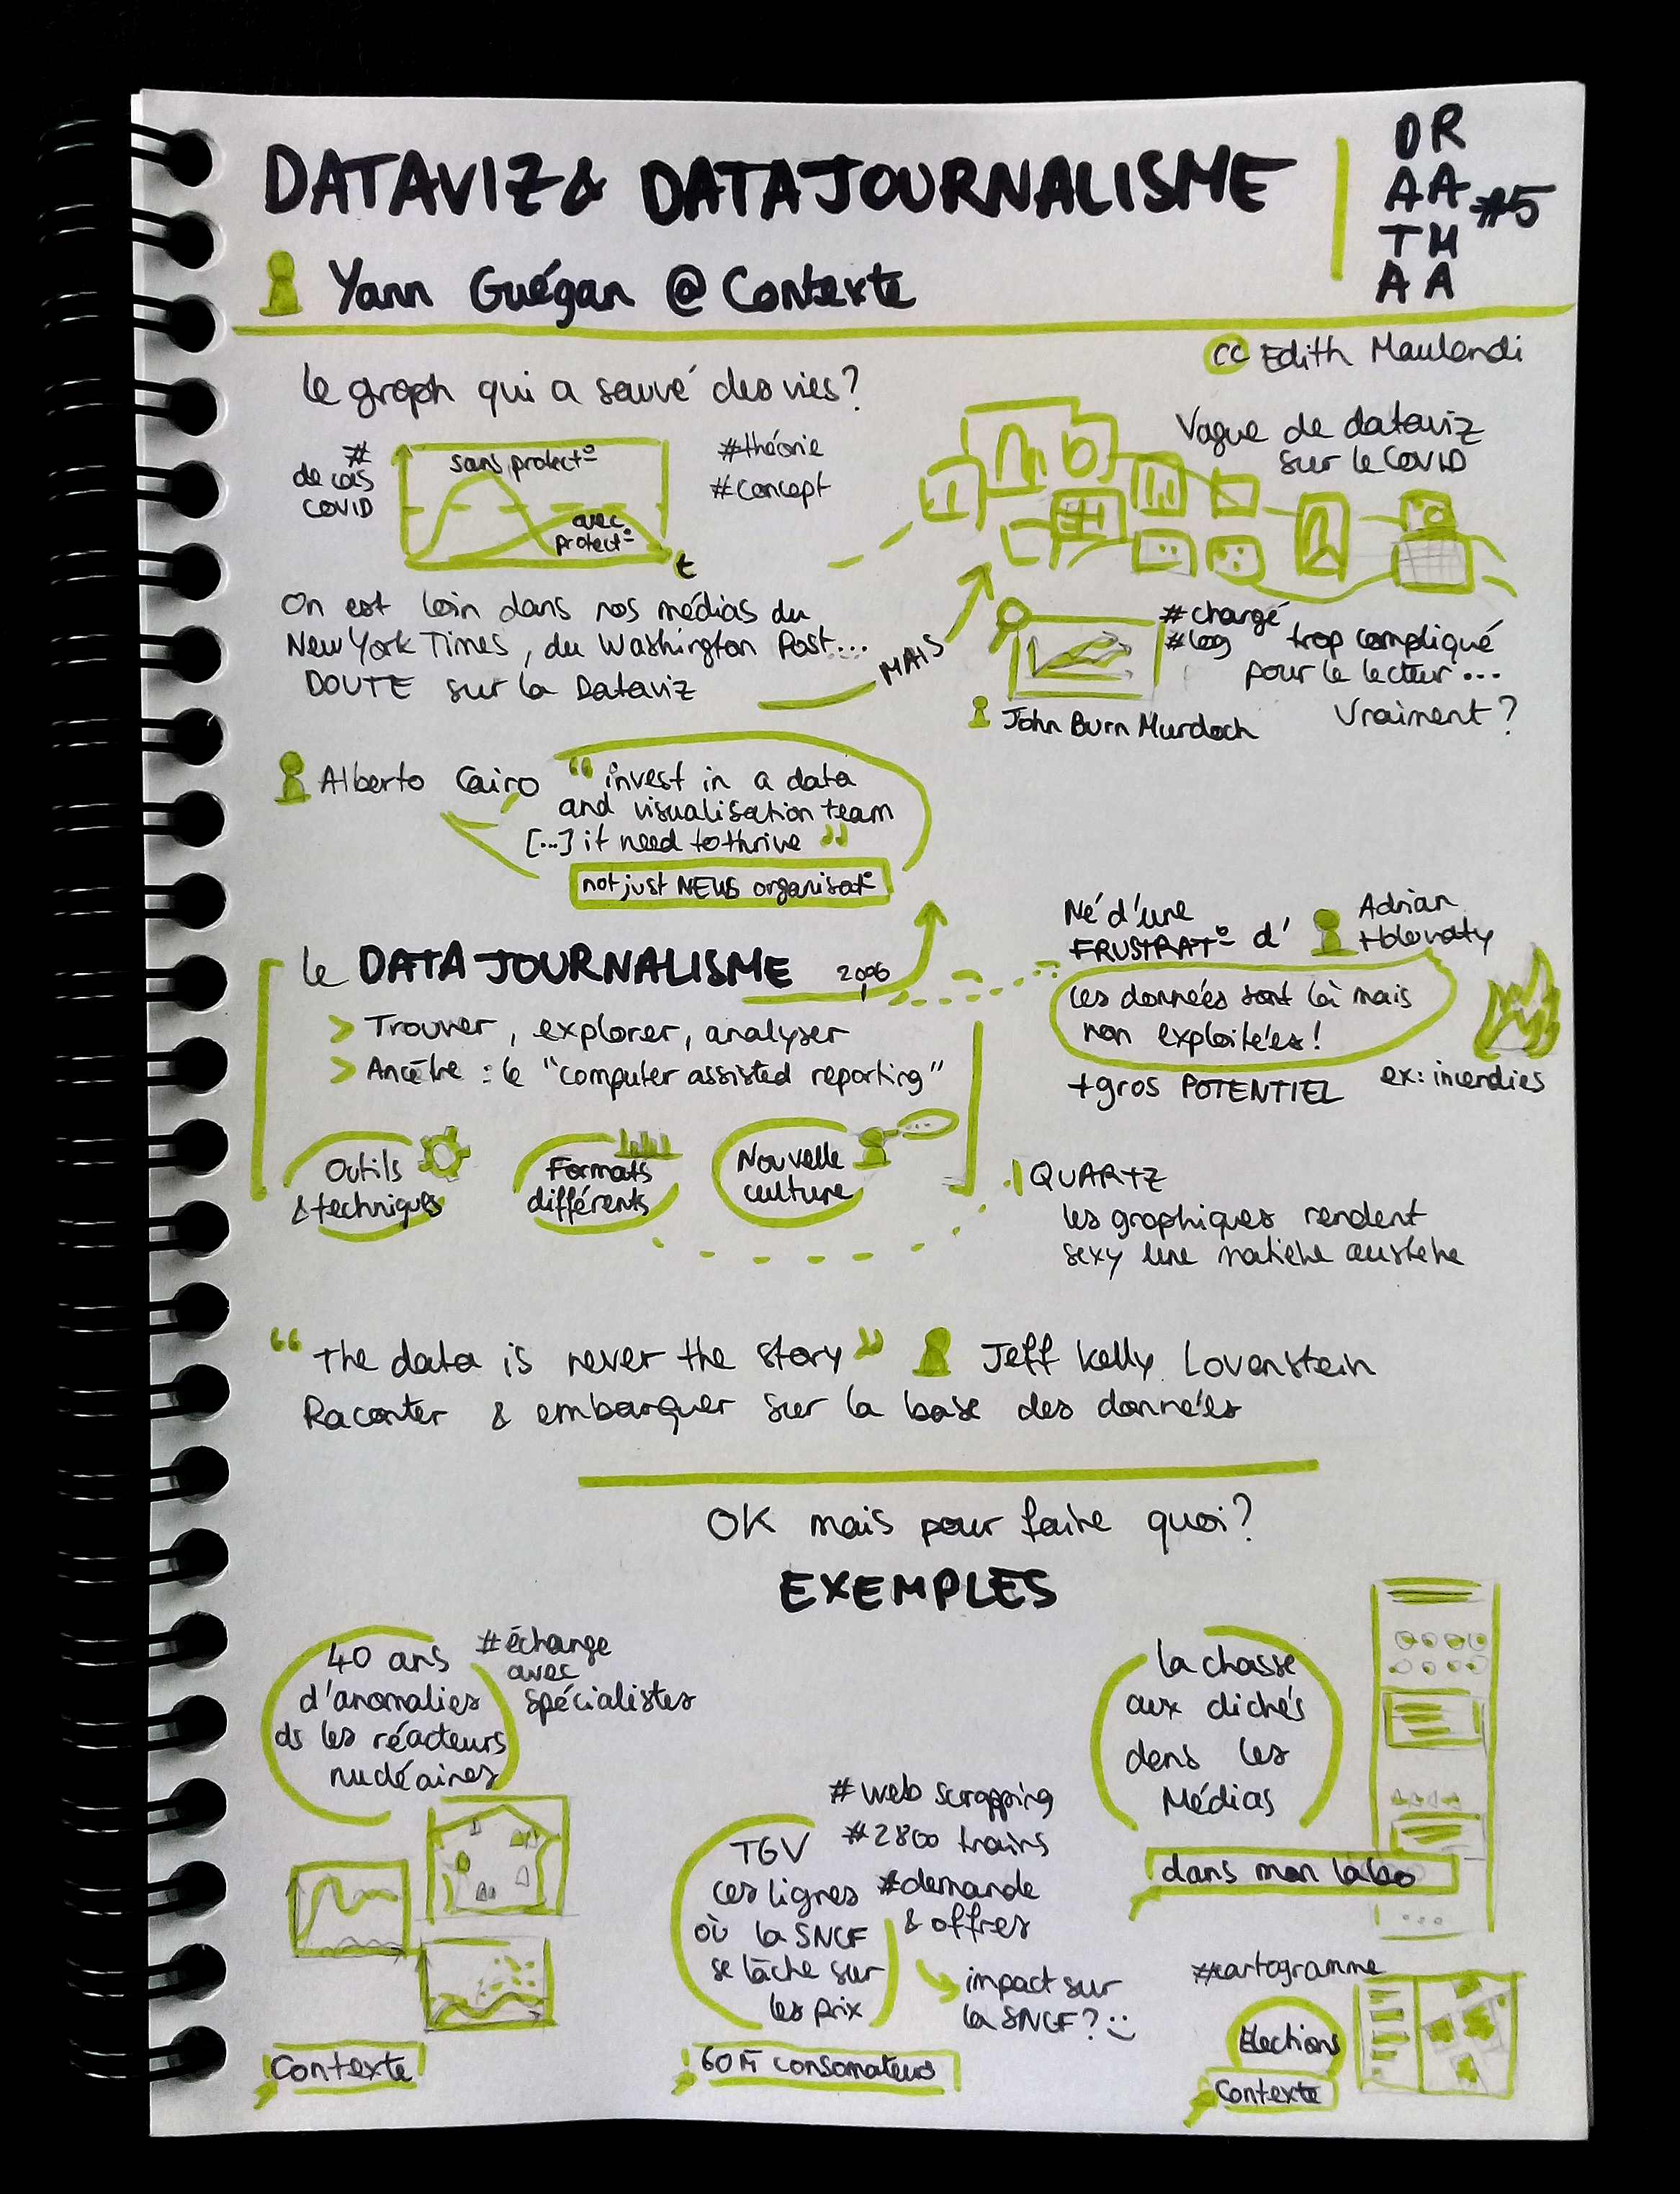 DATAVIZ & DATAJOURNALISME
DR
AA
TM
AA
#5
Yann Guégan @ Contexte
cc Edith Maulandi
le graph qui a sauvé des vies?
# de cas COVID
sans protect°
avec protect°
t
#théorie
#concept
Vague de dataviz
sur le COVID
On est loin dans nos médias du
New York Times, du Washington Post...
DOUTE sur la Dataviz
MAIS
#chargé
#log
trop compliqué
pour le lecteur...
Vraiment?
John Burn Murdoch
Alberto Cairo
"invest in a data
and visualisation team
[...] it need to thrive"
not just NEWS organisat°
le DATA JOURNALISME
2006
> Trouver, explorer, analyser
> Ancêtre : le "computer assisted reporting"
Outils
& techniques
Formats
différents
Nouvelle
culture
Né d'une
FRUSTRAT° d'
Adrian
les données sont là mais
non exploitées!
+gros POTENTIEL
ex: incendies
QUARTZ
les graphiques rendent
sexy une matière austère
"The data is never the story" Jeff Kelly Lovenstein
Raconter & embarquer sur la base des données
OK mais pour faire quoi?
EXEMPLES
40 ans
d'anomalies
ds les réacteurs
nucléaires
#échange
avec
spécialistes
Contexte
TGV
ces lignes
où la SNCF
se lâche sur
les prix
# web scrapping
#2800 trains
#demande
& offres
impact sur
la SNCF? :)
60M consomateurs
la chasse
aux clichés
dans les
Médias
dans mon labo
#cartogramme
Elections
Contexte